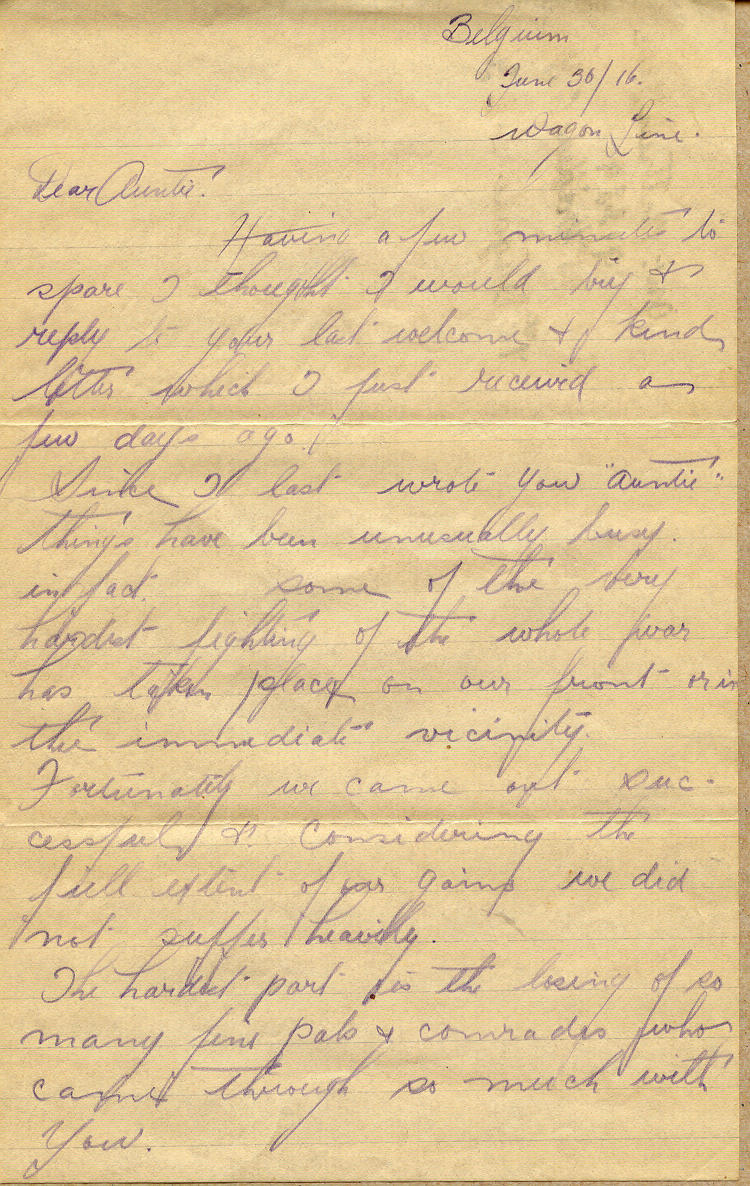 Belgium
June 30/16.
Wagon Line.
Dear Auntie.
Having a few minutes to
spare I thought I would try &
reply to your last welcome & kind
letter which I just received a
few days ago.
Since I last wrote you "Auntie"
things have been unusually busy.
in fact some of the very
hardest fighting of the whole war
has taken place on our front or in
the immediate vicinity.
Fortunately we came out suc-
cessfully & considering the
full extent of our gains we did
not suffer heavily.
The hardest part is the losing of so
many fine pals & comrades who
came through so much with
You.